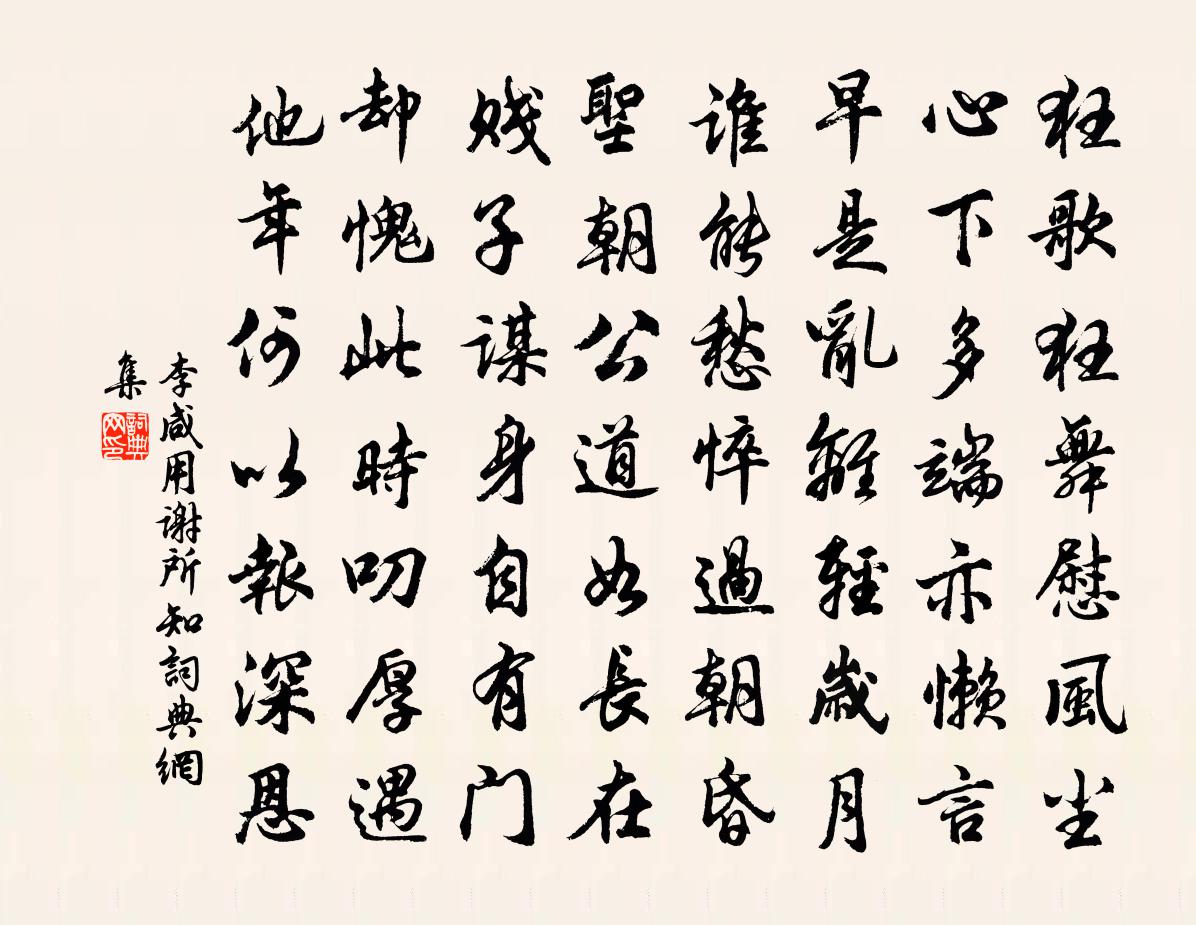 狂歌狂舞慰風尘
心下多端亦懒言
早是亂離輕歲月
谁能愁悴過朝昏
聖朝公道如長在
賤子謀身自有门
却愧此時叨厚遇
他年何以報深恩
李咸用谢所知詞典網
集
詞典网印